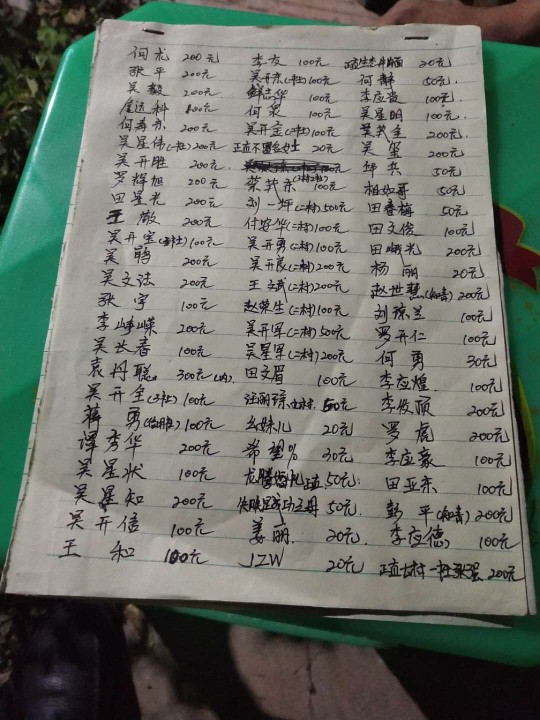 何龙 200元
张平 200元
吴毅 200元
科 100元
何寿东 200元
吴星伟(一社) 200元
吴开胜 200元
罗辉旭 200元
田星光 200元
王敏 200元
吴开宝 100元
吴鹃 200元
吴文法 200元
张宇 100元
李峥嵘 200元
吴长春 100元
袁丹聪 300元
吴开全 100元
蒋勇 100元
谭秀华 200元
吴星状 100元
吴星知 200元
吴开信 100元
王和 100元
李友 100元
吴开东(一社) 100元
鲜志华 100元
何泉 100元
吴开金(二社) 100元
正直不要红女士 20元
荣共东 100元
刘一坪(二村) 500元
付安华(二村) 100元
吴开勇(二村) 100元
吴开良(二村) 200元
王斌(二村) 200元
赵荣生(二村) 100元
吴开军(二村) 500元
吴星军(二村) 200元
田文眉 100元
汪丽琼 50元
幺妹儿 20元
希望% 30元
龙腾 50元
失败是成功之母 50元
姜丽 20元
JZW 20元
20元
何静 50元
李应贵 100元
吴星明 100元
吴共全 200元
吴玺 200元
坪共 50元
柏如哥 50元
田春梅 50元
田文俊 100元
田晓光 200元
杨丽 20元
赵世慧(知青) 200元
刘琼兰 100元
罗开仁 100元
何勇 30元
李应煌 100元
李俊颐 200元
罗虎 200元
李应豪 100元
田亚东 100元
彭平(知青) 200元
李应德 100元
正直七村一社张强 200元